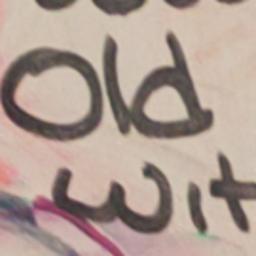 Old
wit